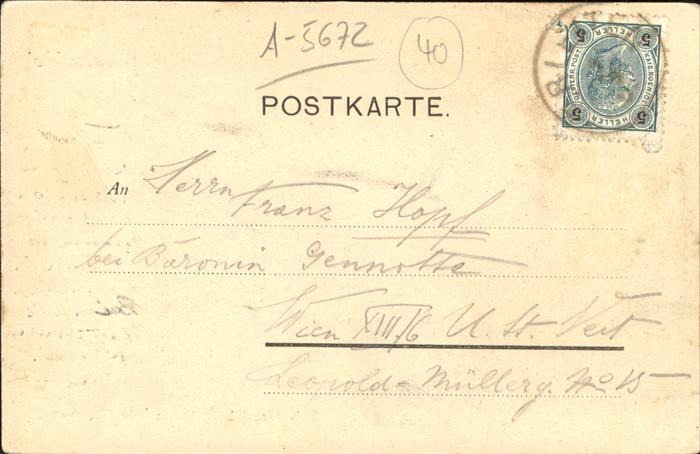 A-5672
40
POSTKARTE.
5 5 5 5
HELLER HELLER
KAIS. KOENIGL. OESTERR. POST
An Herrn
Franz Hopf
bei Baronin Gennotte
Wien XIII/6 U. St. Veit
Leopold-Müllerg. No 15
Bei